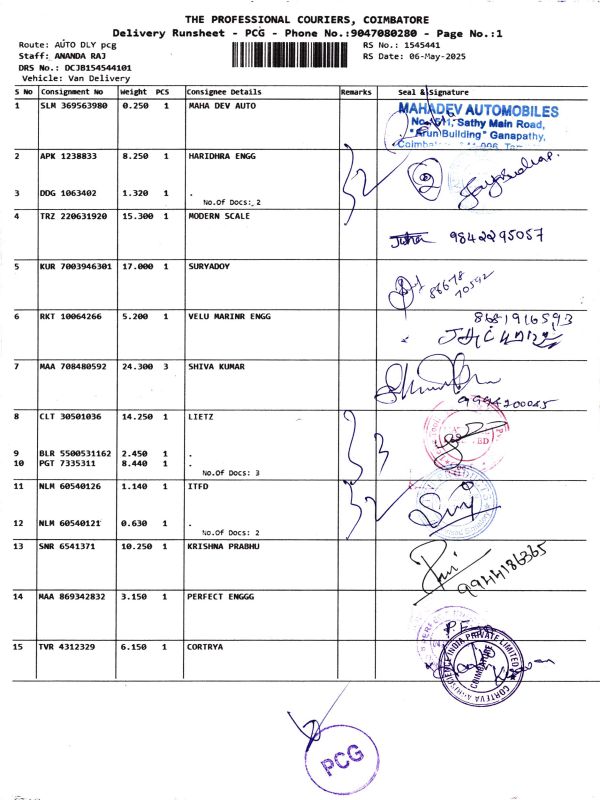 THE PROFESSIONAL COURIERS, COIMBATORE
Delivery Runsheet - PCG - Phone No.:9047080280 - Page No.:1
Route: AUTO DLY pcg RS No.: 1545441
Staff: ANANDA RAJ RS Date: 06-May-2025
DRS No.: DCJB154544101
Vehicle: Van Delivery
S No Consignment No Weight PCS Consignee Details Remarks Seal & Signature
1 SLM 369563980 0.250 1 MAHA DEV AUTO
MAHADEV AUTOMOBILES
Sathy Main Road,
"Arun Building" Ganapathy,
2 APK 1238833 8.250 1 HARIDHRA ENGG
3 DDG 1063402 1.320 1 .
No.Of Docs: 2
2
4 TRZ 220631920 15.300 1 MODERN SCALE
9842295057
5 KUR 7003946301 17.000 1 SURYADOY
88678
70592
6 RKT 10064266 5.200 1 VELU MARINR ENGG
8681916593
7 MAA 708480592 24.300 3 SHIVA KUMAR
9994200045
8 CLT 30501036 14.250 1 LIETZ
9 BLR 5500531162 2.450 1 .
10 PGT 7335311 8.440 1 .
No.Of Docs: 3
3
11 NLM 60540126 1.140 1 ITFD
12 NLM 60540121 0.630 1 .
No.Of Docs: 2
2
13 SNR 6541371 10.250 1 KRISHNA PRABHU
9944186365
14 MAA 869342832 3.150 1 PERFECT ENGGG
15 TVR 4312329 6.150 1 CORTRYA
COIMBATORE
PCG